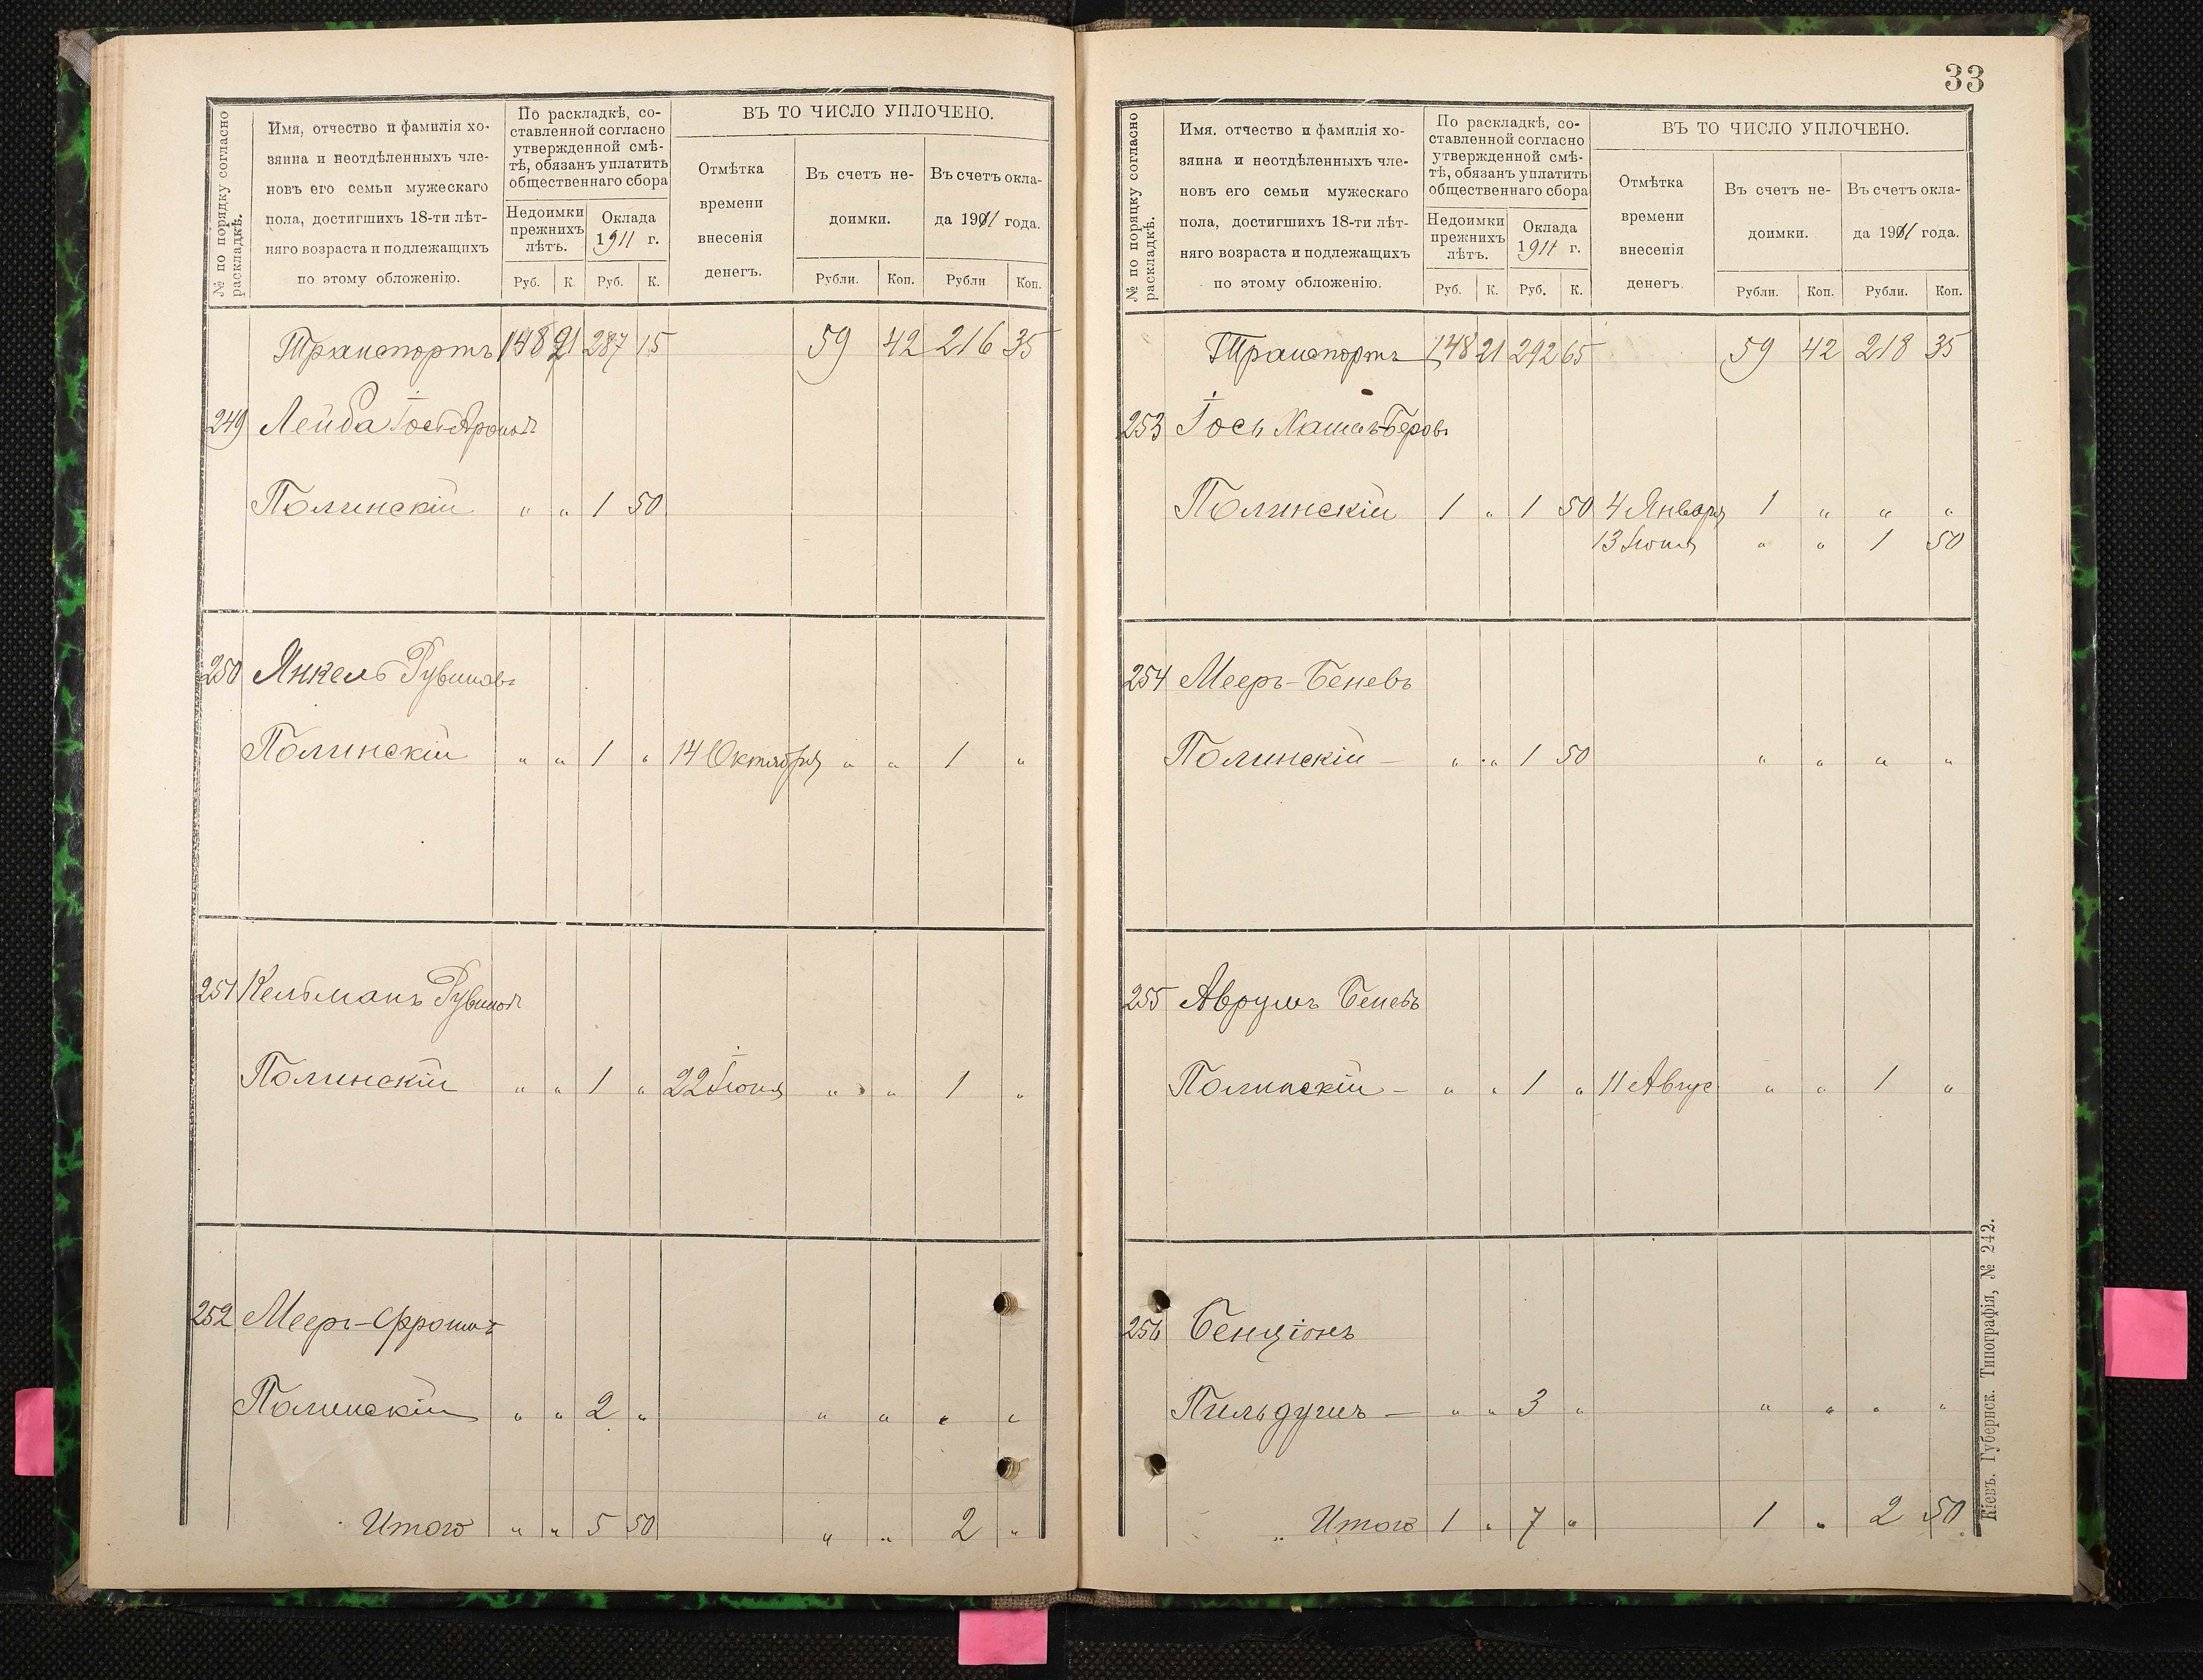 33
№ по порядку согласно раскладкѣ.
Имя, отчество и фамилія хо-
зяина и неотдѣленныхъ чле-
новъ его семьи мужескаго
пола, достигшихъ 18-ти лѣт-
няго возраста и подлежащихъ
по этому обложенію.
По раскладкѣ, со-
ставленной согласно
утвержденной смѣ-
тѣ, обязанъ уплатить
общественнаго сбора
Недоимки
прежнихъ
лѣтъ.
Оклада
1911 г.
Руб. К. Руб. К.
ВЪ ТО ЧИСЛО УПЛОЧЕНО.
Отмѣтка
времени
внесенія
денегъ.
Въ счетъ не-
доимки.
Въ счетъ окла-
да 1911 года.
Рубли. Коп. Рубли Коп.
Транспортъ 148 21 287 15 59 42 216 35
249 Лейба Іось Ароновъ
Полинскій " " 1 50
250 Янкель Рувиновъ
Полинскій " " 1 " 14 Октября " " 1 "
251 Кельманъ Рувиновъ
Полинскій " " 1 " 22 Іюня " " 1 "
252 Мееръ-
Полинскій " " 2 " " " " "
Итого " " 5 50 " " 2 "
№ по порядку согласно раскладкѣ.
Имя, отчество и фамилія хо-
зяина и неотдѣленныхъ чле-
новъ его семьи мужескаго
пола, достигшихъ 18-ти лѣт-
няго возраста и подлежащихъ
по этому обложенію.
По раскладкѣ, со-
ставленной согласно
утвержденной смѣ-
тѣ, обязанъ уплатить
общественнаго сбора
Недоимки
прежнихъ
лѣтъ.
Оклада
1911 г.
Руб. К. Руб. К.
ВЪ ТО ЧИСЛО УПЛОЧЕНО.
Отмѣтка
времени
внесенія
денегъ.
Въ счетъ не-
доимки.
Въ счетъ окла-
да 1911 года.
Рубли. Коп. Рубли. Коп.
Транспортъ 148 21 292 65 59 42 218 35
253 Іось Беровъ
Полинскій 1 " 1 50 4 Января 1 " " "
13 Іюня " " 1 50
254 Мееръ-Беневъ
Полинскій — " " 1 50 " " " "
255 Аврумъ Беневъ
Полинскій — " " 1 " 11 Авгус " " 1 "
256 Бенціонъ
Пильдушъ — " " 3 " " " " "
" Итого 1 " 7 " 1 " 2 50
Кіевъ. Губернск. Типографія, № 242.